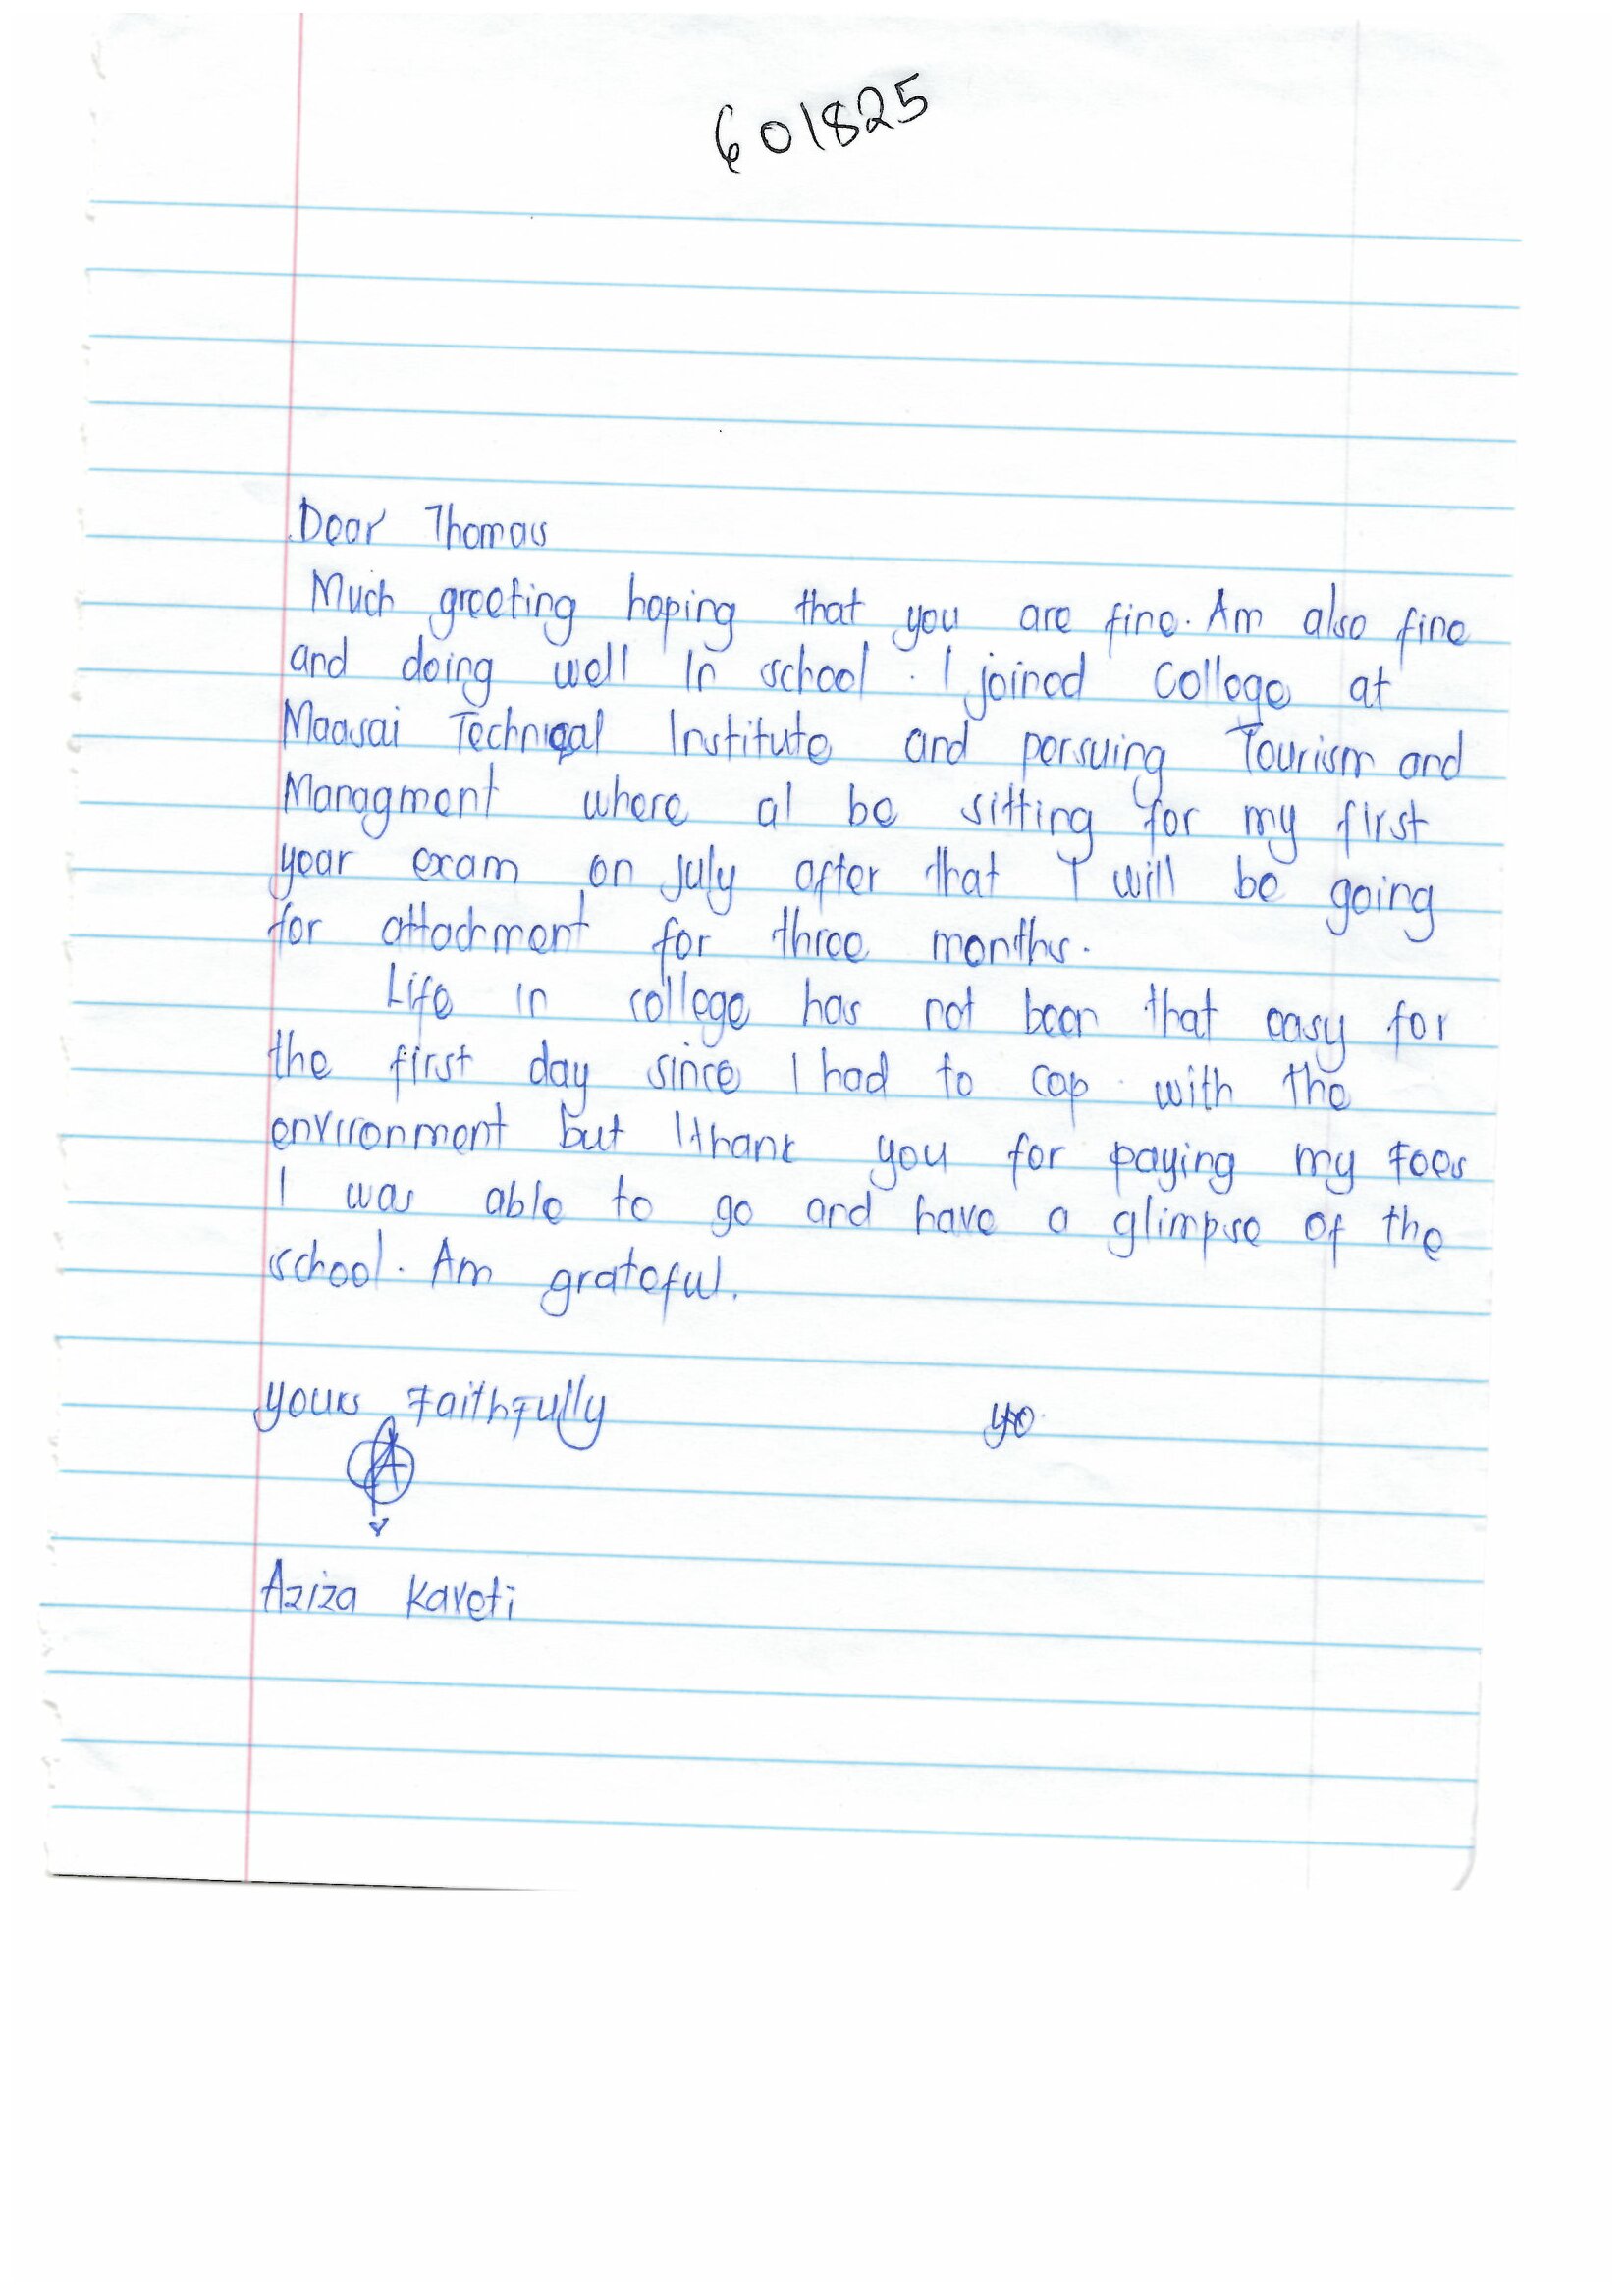 601825
Dear Thomas
Much greeting hoping that you are fine. Am also fine
and doing well in school. I joined College at
Maasai Technical Institute and persuing Tourism and
Managment where al be sitting for my first
year exam on July after that I will be going
for attachment for three months.
Life in college has not been that easy for
the first day since I had to cop with the
environment but I thank you for paying my fees
I was able to go and have a glimpse of the
school. Am grateful.
yours Faithfully
yo
Aziza Kaveti